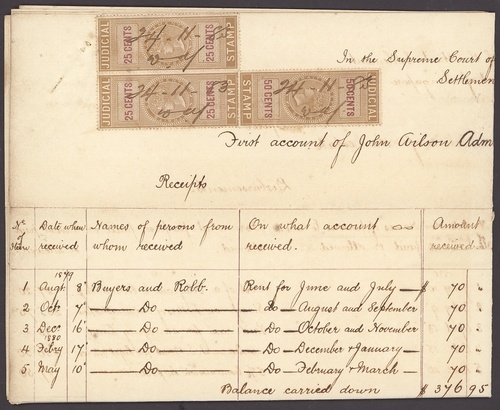 JUDICIAL 25 CENTS 25 CENTS STAMP
24 . 11 .
JUDICIAL 25 CENTS 25 CENTS STAMP
24 . 11 . 83
STAMP 50 CENTS 50 CENTS JUDICIAL
24 . 11 .
In the Supreme Court of
Settlemen
First account of John Wilson Adm
Receipts
No of Items
Date when received
Names of persons from whom received
On what account received.
Amount received
1879
1 Augt 8" Buyers and Robb. Rent for June and July — $ 70 "
2 Oct 7" — Do — do — August and September — 70 "
3 Dec 16" — Do — Do — October and November — 70 "
1880
4 Febry 17" — Do — Do — December & January — 70 "
5 May 10" — Do — Do — February & March — 70 "
Balance carried down $ 376 95